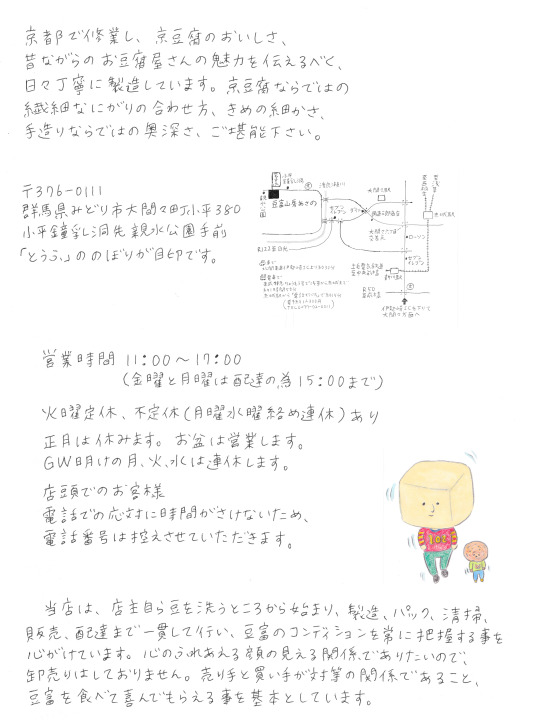 京都で修業し、京豆腐のおいしさ、
昔ながらのお豆腐屋さんの魅力を伝えるべく、
日々丁寧に製造しています。京豆腐ならではの
繊細なにがりの合わせ方、きめの細かさ、
手造りならではの奥深さ、ご堪能下さい。
〒376-0111
群馬県みどり市大間々町小平380
小平鐘乳洞先親水公園手前
「とうふ」ののぼりが目印です。
豆富山屋あさの
セブン
イレブン
ローソン
セブン
イレブン
営業時間 11:00〜17:00
(金曜と月曜は配達の為15:00まで)
火曜定休、不定休(月曜水曜絡め連休)あり
正月は休みます。お盆は営業します。
GW明けの月、火、水は連休します。
店頭でのお客様
電話での応対に時間がさけないため、
電話番号は控えさせていただきます。
当店は、店主自ら豆を洗うところから始まり、製造、パック、清掃、
販売、配達まで一貫して行い、豆富のコンディションを常に把握する事を
心がけています。心のふれあえる顔の見える関係でありたいので、
卸売りはしておりません。売り手と買い手が対等の関係であること、
豆富を食べて喜んでもらえる事を基本としています。